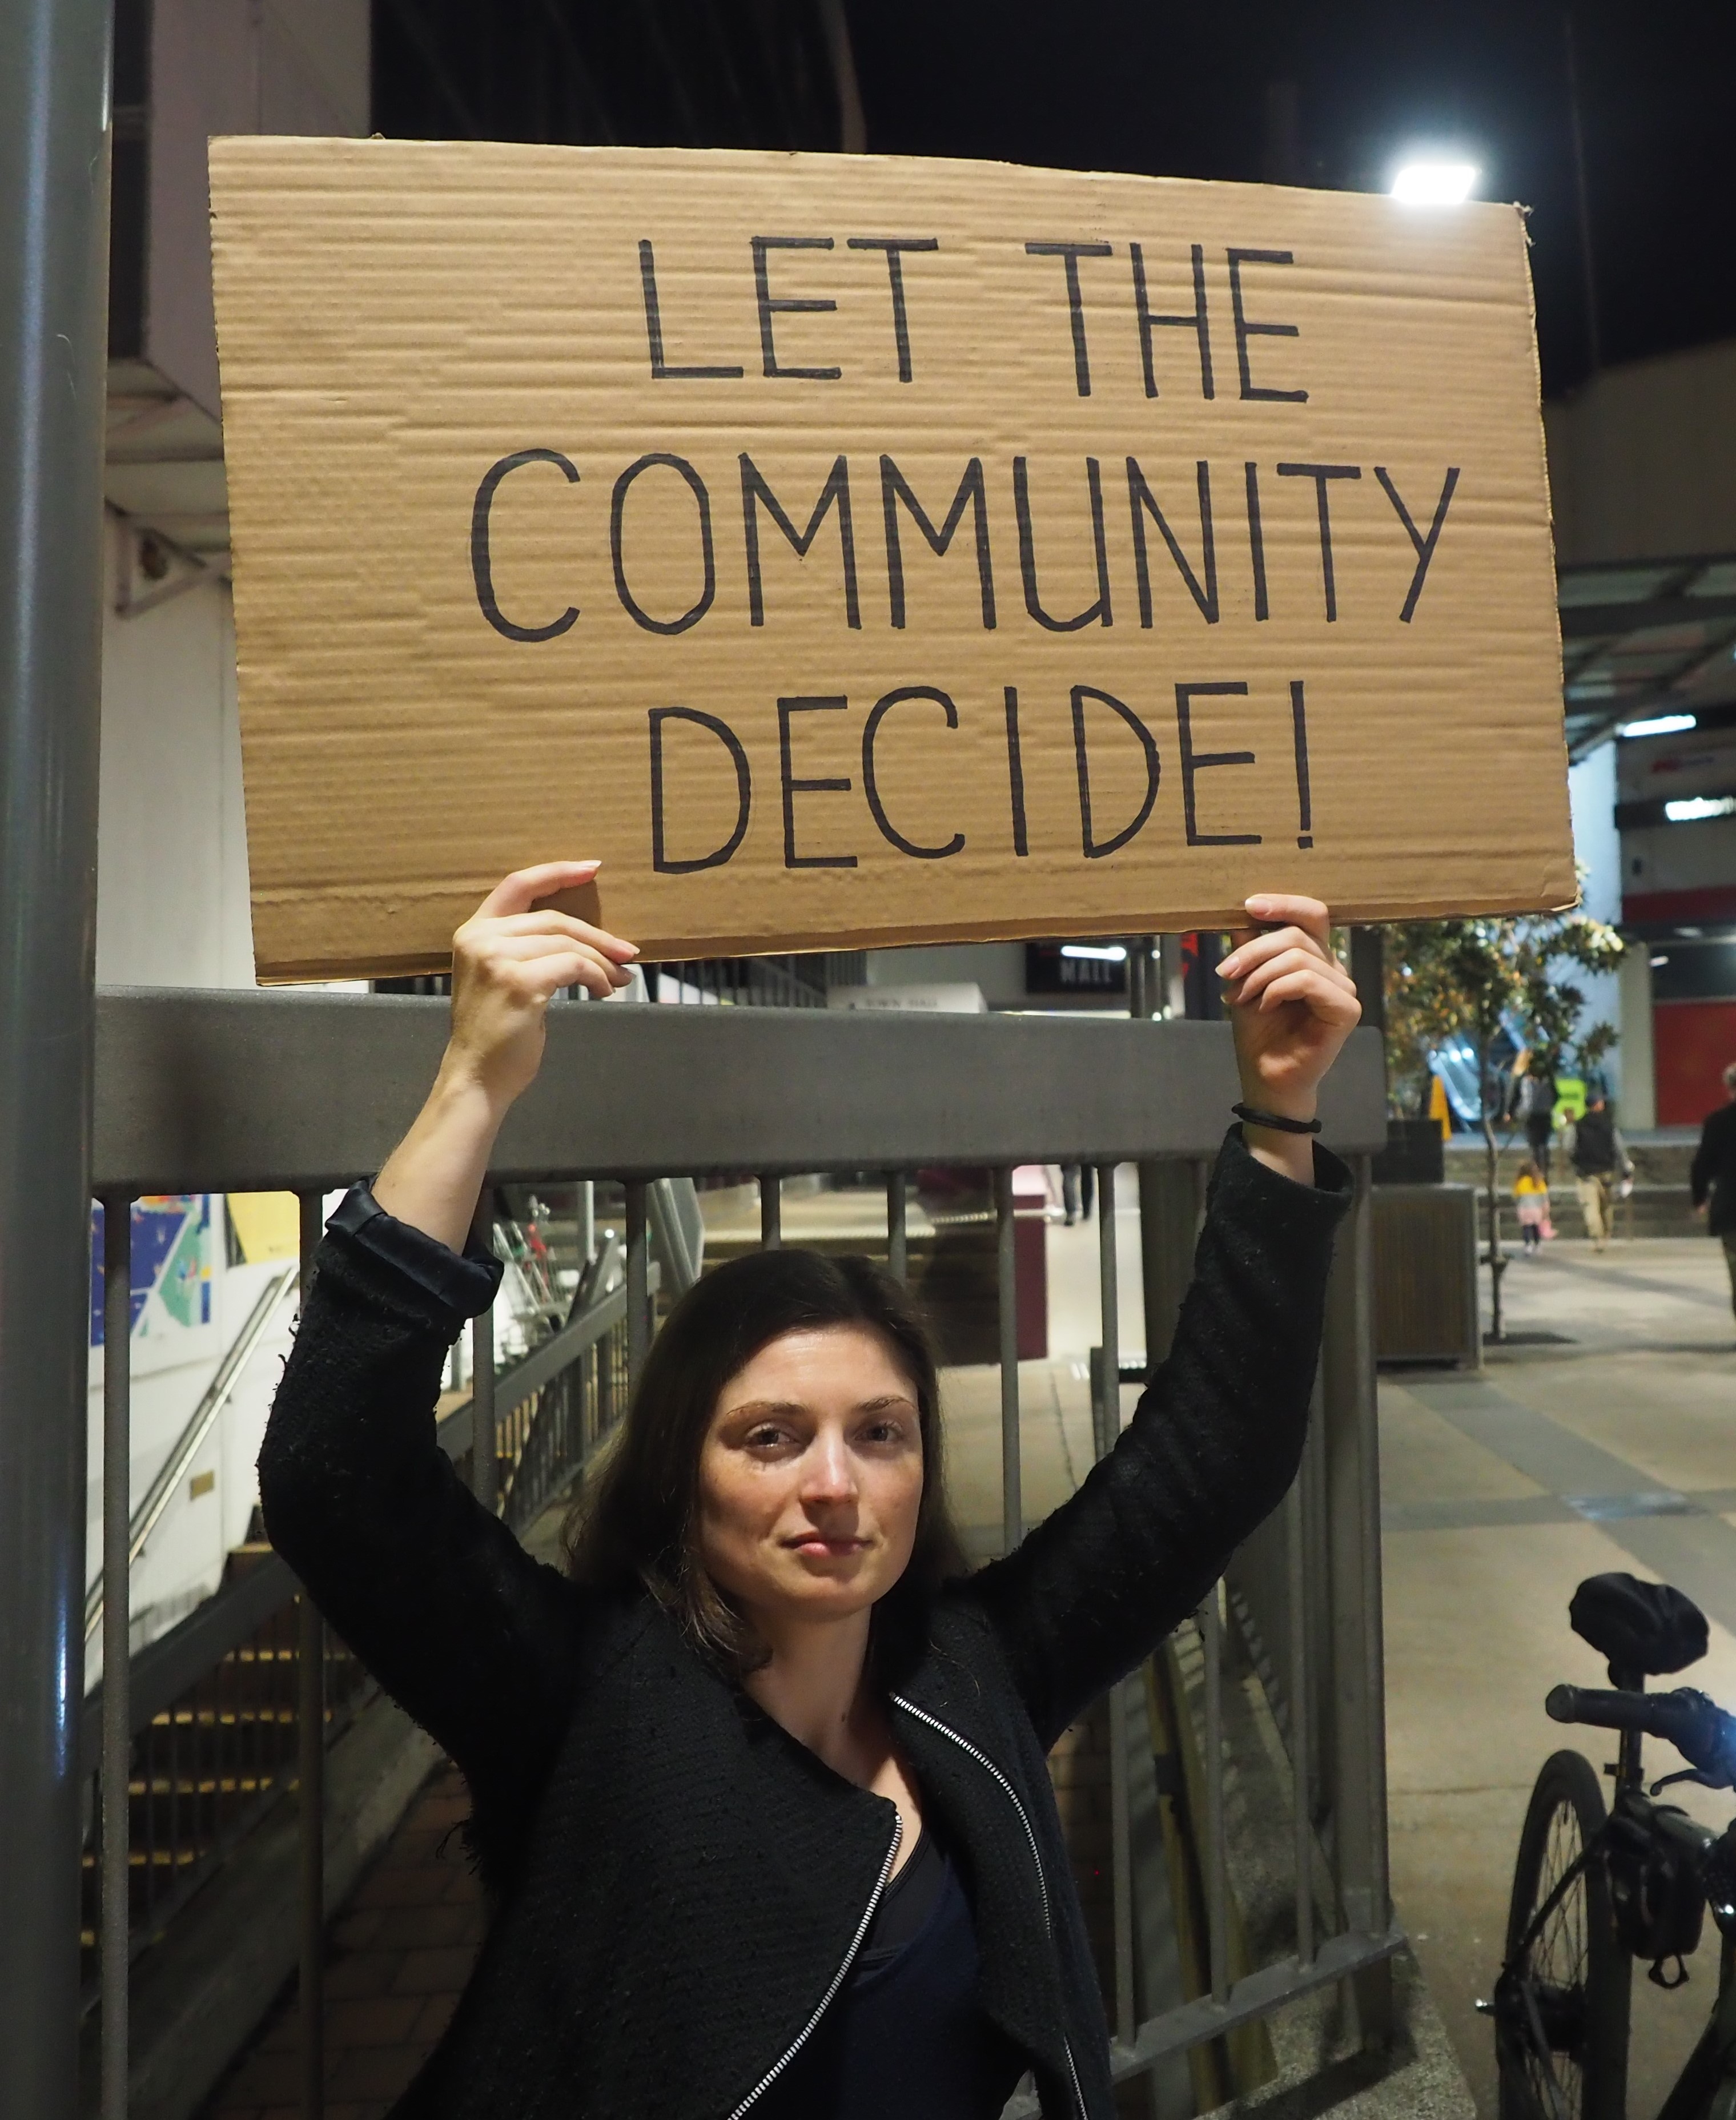 LET THE
COMMUNITY
DECIDE!
MALL
TOWN HALL